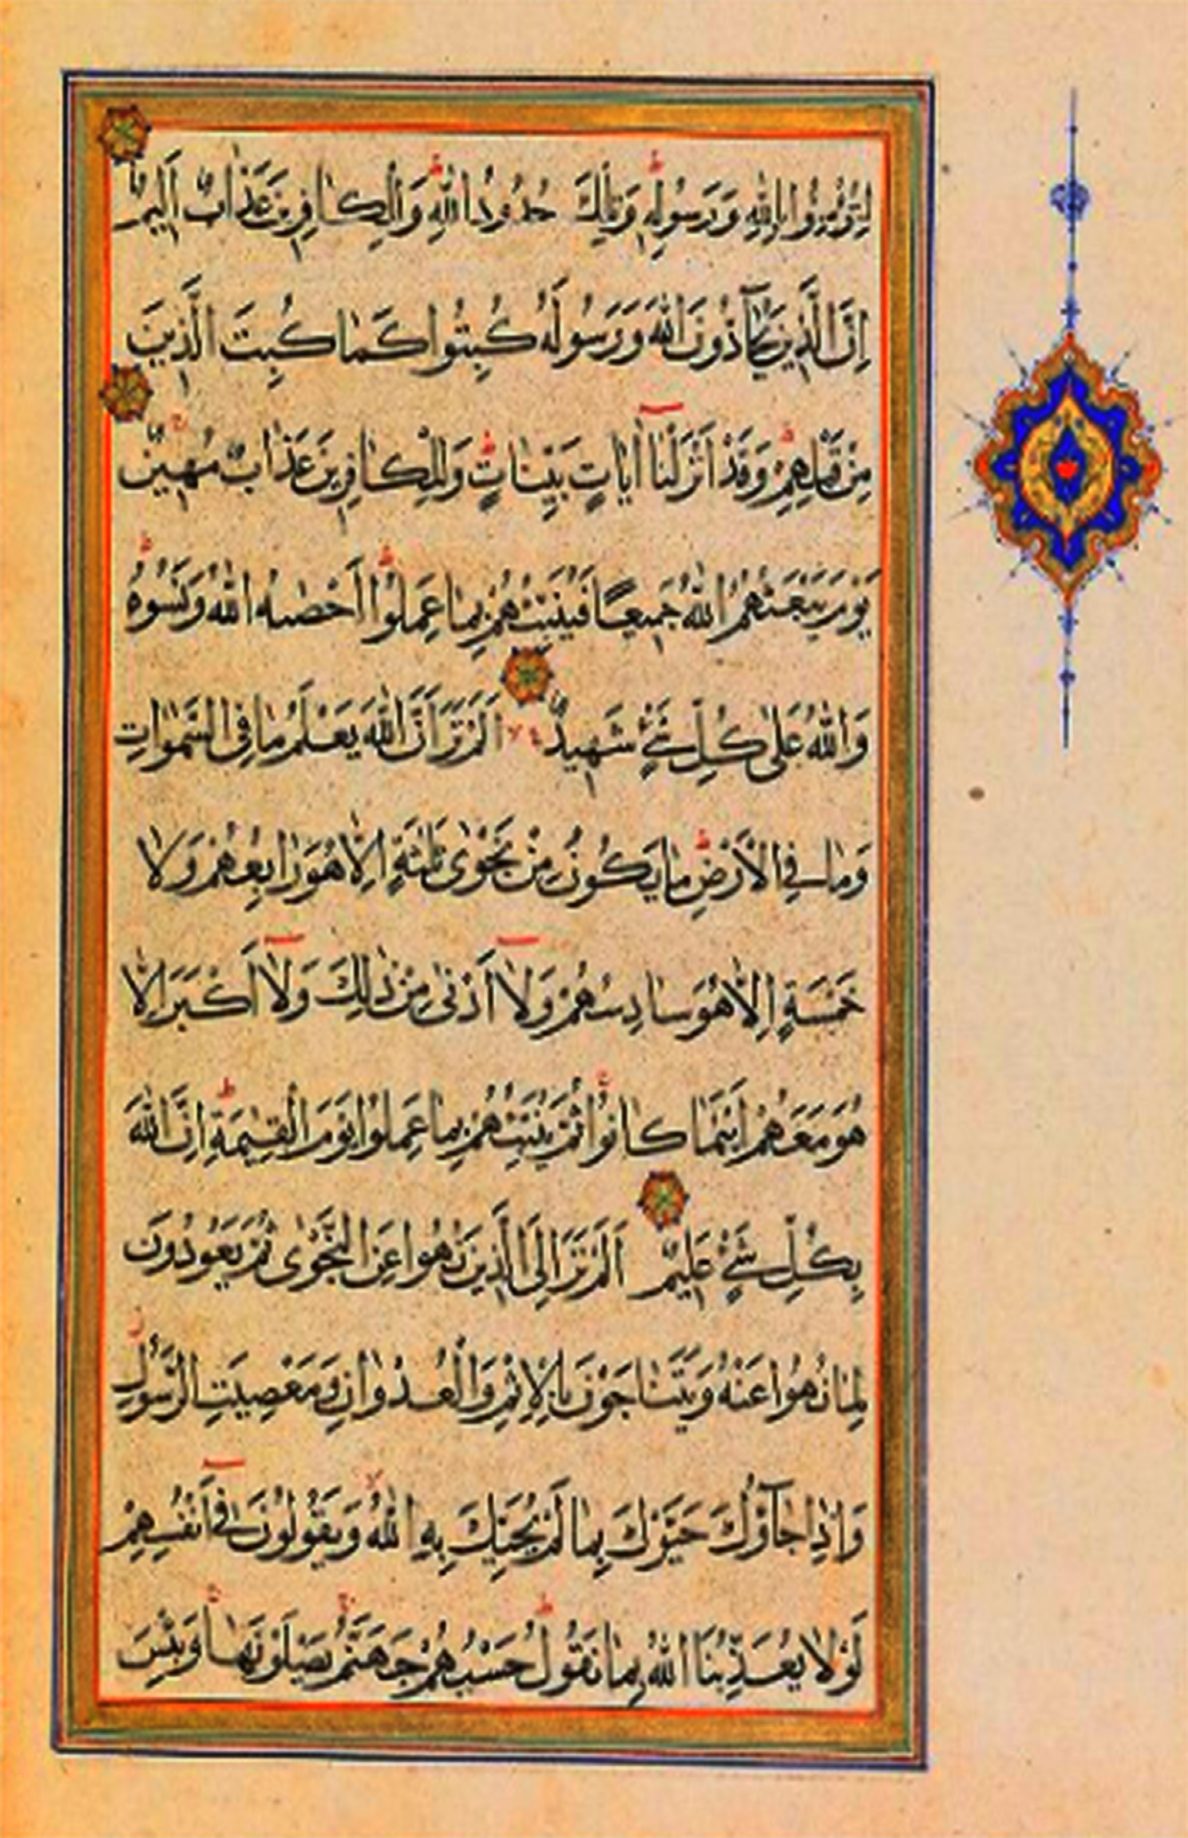 لِتُؤْمِنُوا بِاللهِ وَرَسُولِهِ وَتِلْكَ حُدُودُ اللهِ وَلِلْكَافِرِينَ عَذَابٌ اَلِيمٌ
اِنَّ الَّذِينَ يُحَآدُّونَ اللهَ وَرَسُولَهُ كُبِتُوا كَمَا كُبِتَ الَّذِينَ
مِنْ قَبْلِهِمْ وَقَدْ اَنْزَلْنَآ اٰيَاتٍ بَيِّنَاتٍ وَلِلْكَافِرِينَ عَذَابٌ مُهِينٌ
يَوْمَ يَبْعَثُهُمُ اللهُ جَمِيعًا فَيُنَبِّئُهُمْ بِمَا عَمِلُوا اَحْصٰيهُ اللهُ وَنَسُوهُ
وَاللهُ عَلٰى كُلِّ شَيْءٍ شَهِيدٌ اَلَمْ تَرَ اَنَّ اللهَ يَعْلَمُ مَا فِى السَّمٰوَاتِ
وَمَا فِى الْاَرْضِ مَا يَكُونُ مِنْ نَجْوٰى ثَلٰثَةٍ اِلَّا هُوَ رَابِعُهُمْ وَلَا
خَمْسَةٍ اِلَّا هُوَ سَادِسُهُمْ وَلَآ اَدْنٰى مِنْ ذٰلِكَ وَلَآ اَكْبَرَ اِلَّا
هُوَ مَعَهُمْ اَيْنَمَا كَانُوا ثُمَّ يُنَبِّئُهُمْ بِمَا عَمِلُوا يَوْمَ الْقِيٰمَةِ اِنَّ اللهَ
بِكُلِّ شَيْءٍ عَلِيمٌ اَلَمْ تَرَ اِلَى الَّذِينَ نُهُوا عَنِ النَّجْوٰى ثُمَّ يَعُودُونَ
لِمَا نُهُوا عَنْهُ وَيَتَنَاجَوْنَ بِالْاِثْمِ وَالْعُدْوَانِ وَمَعْصِيَتِ الرَّسُولِ
وَاِذَا جَآؤُكَ حَيَّوْكَ بِمَا لَمْ يُحَيِّكَ بِهِ اللهُ وَيَقُولُونَ فِىٓ اَنْفُسِهِمْ
لَوْلَا يُعَذِّبُنَا اللهُ بِمَا نَقُولُ حَسْبُهُمْ جَهَنَّمُ يَصْلَوْنَهَا وَبِئْسَ